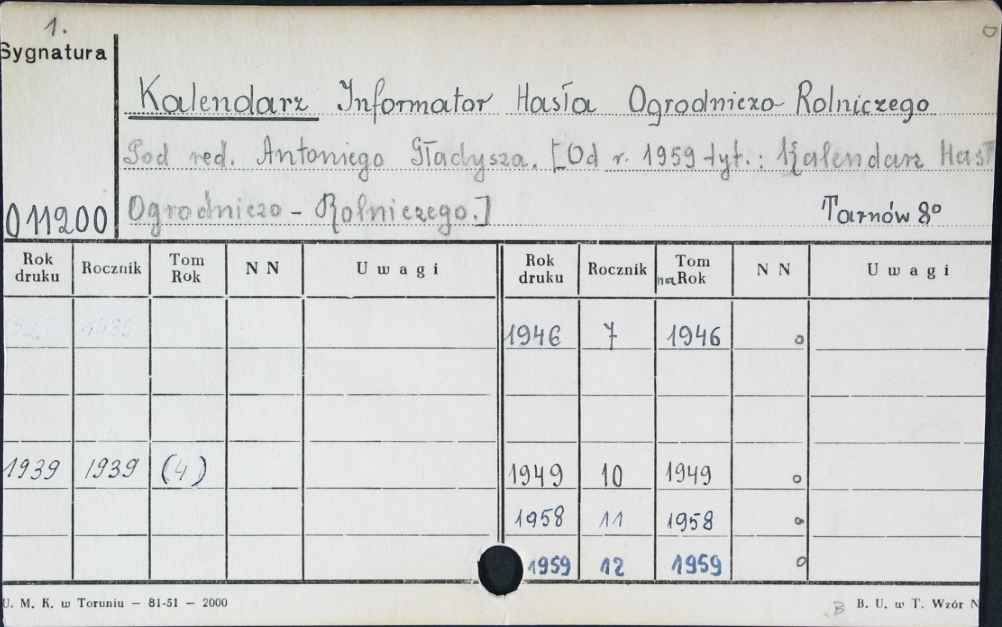 1.
Sygnatura
Kalendarz Informator Hasła Ogrodniczo-Rolniczego
Pod red. Antoniego Gładysza. [Od r. 1959 tyt.: Kalendarz Hasł
Ogrodniczo-Rolniczego.] Tarnów 8°
011200
Rok druku Rocznik Tom Rok N N Uwagi Rok druku Rocznik Tom na Rok N N Uwagi
1946 7 1946 o
1939 1939 (4) 1949 10 1949 o
1958 11 1958 o
1959 12 1959 o
U. M. K. w Toruniu — 81-51 — 2000 B. U. w T. Wzór N